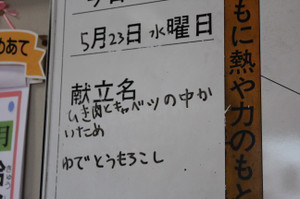 5月23日 水曜日
献立名
ひき肉とキャベツの中か
いため
ゆでとうもろこし
もに熱や力のもと
めあて